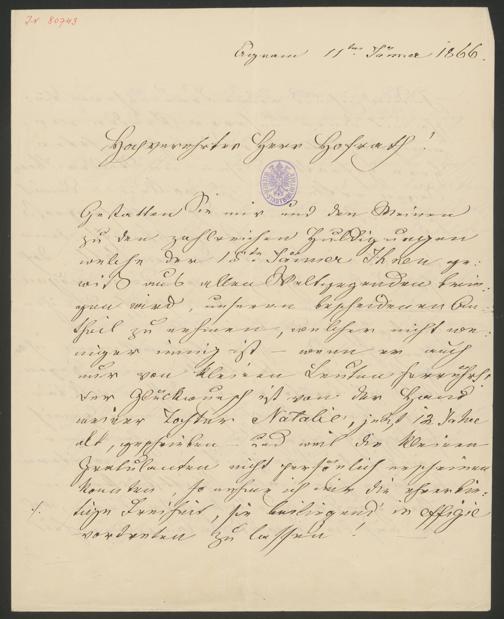 I.N. 80743
Agram 11ten Jänner 1866.
Hochverehrter Herr Hofrath!
Gestatten Sie mir und den Meinen
zu den zahlreichen Huldigungen
welche der 15te Jänner Ihnen ge-
wiß aus allen Weltgegenden brin-
gen wird, unsern bescheidenen An-
theil zu nehmen, welcher nicht we-
niger innig ist – wenn er auch
nur von kleinen Leuten herrührt.
Der Glückwunsch ist von der Hand
meiner Tochter Natalie, jetzt 12 Jahre
alt, geschrieben – und weil die kleinen
Gratulanten nicht persönlich erscheinen
konnten, so nehme ich mir die ehrerbie-
tige Freiheit, sie beiliegend in effigie
vertreten zu lassen!